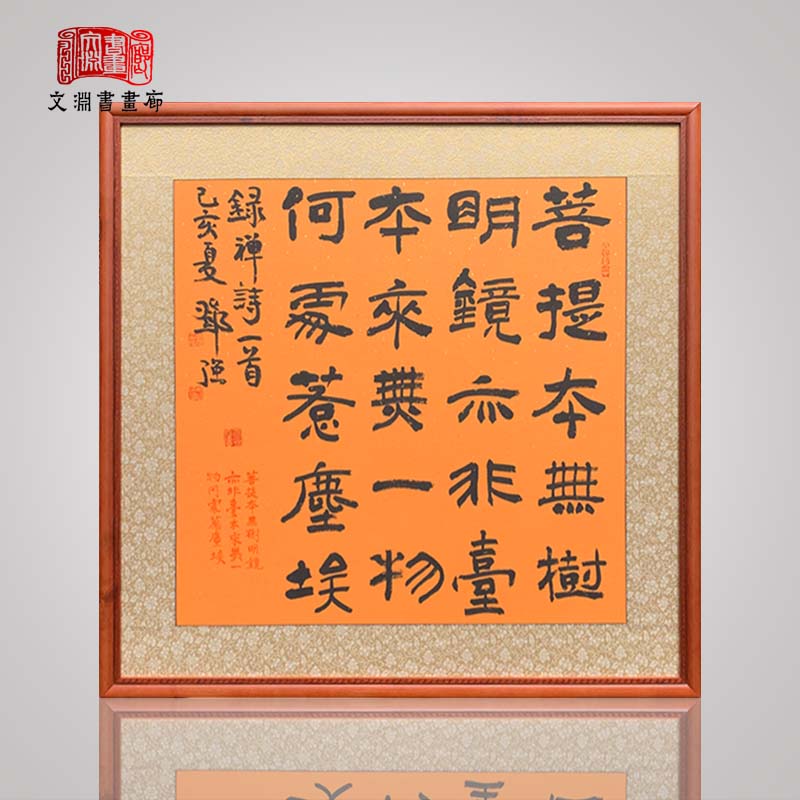 文淵書畫廊
菩提本無樹
明鏡亦非臺
本來無一物
何處惹塵埃
録禅詩一首
己亥夏 鄧強
菩提本無樹明鏡
亦非臺本來無一
物何處惹塵埃